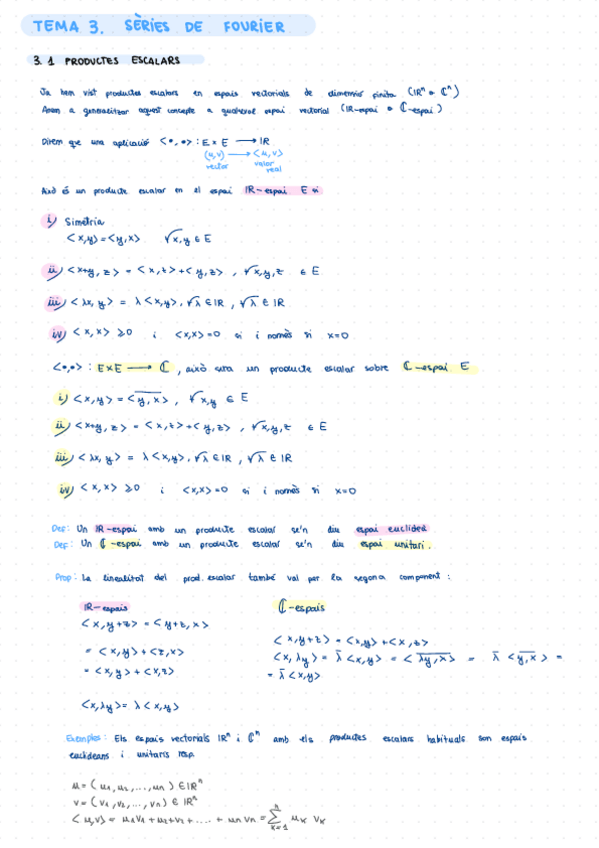 TEMA 3. SÈRIES DE FOURIER
3.1 PRODUCTES ESCALARS
Ja hem vist productes escalars en espais vectorials de dimensió finita (ℝⁿ o ℂⁿ)
Anem a generalitzar aquest concepte a qualsevol espai vectorial (ℝ-espai o ℂ-espai)
Direm que una aplicació <•,•> : E × E ⟶ ℝ
(u,v) ⟶ <u,v>
vector valor
real
Això és un producte escalar en el espai ℝ-espai E si
i) Simetria
<x,y> = <y,x> ∀x,y ∈ E
ii) <x+y, z> = <x,z> + <y,z> , ∀x,y,z ∈ E
iii) <λx, y> = λ <x,y>, ∀λ ∈ ℝ , ∀λ ∈ ℝ
iv) <x,x> ≥ 0 i <x,x> = 0 si i només si x=0
<•,•> : E×E ⟶ ℂ , això sera un producte escalar sobre ℂ-espai E
i) <x,y> = <y,x>̅ , ∀x,y ∈ E
ii) <x+y, z> = <x,z> + <y,z> , ∀x,y,z ∈ E
iii) <λx, y> = λ <x,y>, ∀λ ∈ ℝ , ∀λ ∈ ℝ
iv) <x,x> ≥ 0 i <x,x> = 0 si i només si x=0
Def: Un ℝ-espai amb un producte escalar se'n diu espai euclideà
Def: Un ℂ-espai amb un producte escalar se'n diu espai unitari.
Prop: La linealitat del prod. escalar també val per la segona component :
ℝ-espais
<x, y+z> = <y+z, x>
= <x,y> + <z,x>
= <x,y> + <x,z>
<x,λy> = λ <x,y>
ℂ-espais
<x, y+z> = <x,y> + <x,z>
<x, λy> = λ̅ <x,y> = <λy,x>̅ = λ̅ <y,x>̅ =
= λ̅ <x,y>
Exemples: Els espais vectorials ℝⁿ i ℂⁿ amb els productes escalars habituals son espais
euclideans i unitaris resp.
u = (u₁, u₂, ..., uₙ) ∈ ℝⁿ
v = (v₁, v₂, ..., vₙ) ∈ ℝⁿ
<u,v> = u₁v₁ + u₂v₂ + .... + uₙvₙ = ∑ₖ₌₁ⁿ uₖ vₖ